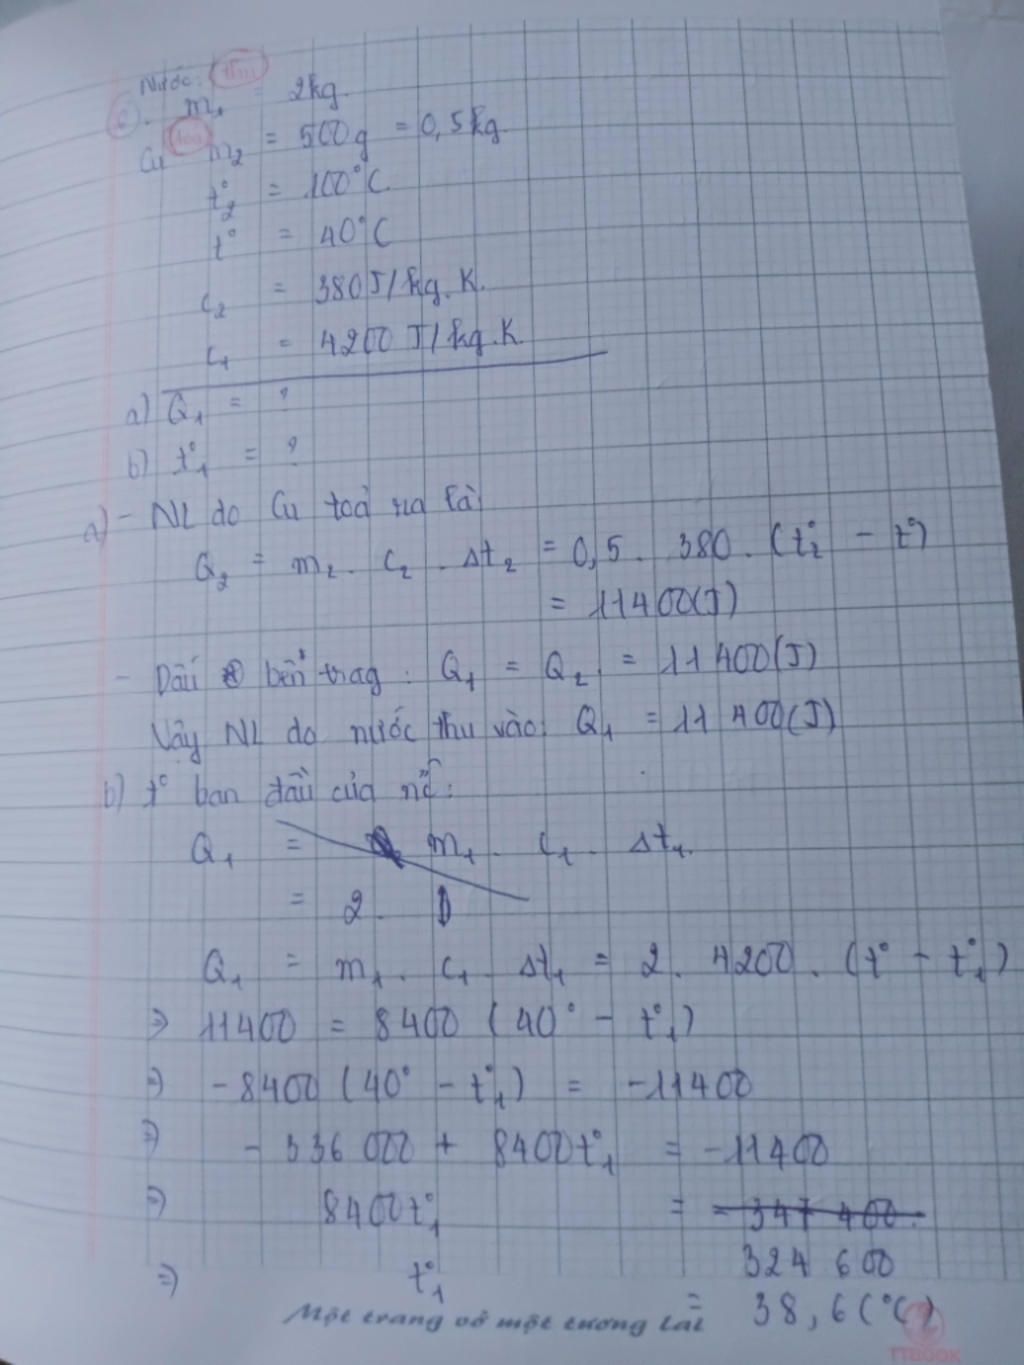 Nước: thu
6. m₁ = 2kg.
Cu toả m₂ = 500g = 0,5kg.
t°₂ = 100°C.
t° = 40°C
c₂ = 380J/kg.K.
c₁ = 4200J/kg.K.
a) Q₁ = ?
b) t°₁ = ?
a) - NL do Cu toả ra là:
Q₂ = m₂. c₂. Δt₂ = 0,5. 380. (t°₂ - t°)
= 11400(J)
- Dấu bên trag: Q₁ = Q₂ = 11400(J)
Vậy NL do nước thu vào: Q₁ = 11400(J)
b) t° ban đầu của nc:
Q₁ = m₁. c₁. Δt₁.
= 2.
Q₁ = m₁. c₁. Δt₁ = 2. 4200. (t° - t°₁)
⇒ 11400 = 8400 (40° - t°₁)
⇒ -8400 (40° - t°₁) = -11400
⇒ - 336 000 + 8400t°₁ = -11400
⇒ 8400t°₁ = - 347 400.
324 600
⇒ t°₁ = 38,6(°C)
Một trang vở một tương lai
TTBOOK